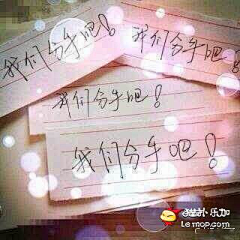 我们分手吧！
我们分手吧！
我们分手吧！
我们分手吧！
猫扑 乐加
Lemop.com